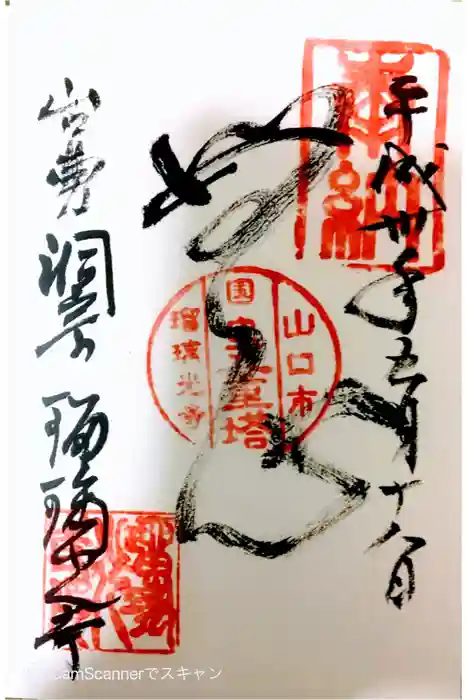 奉納
平成卅年五月十八日
山口市
国宝五重塔
瑠璃光寺
曹洞宗 瑠璃光寺
CamScannerでスキャン